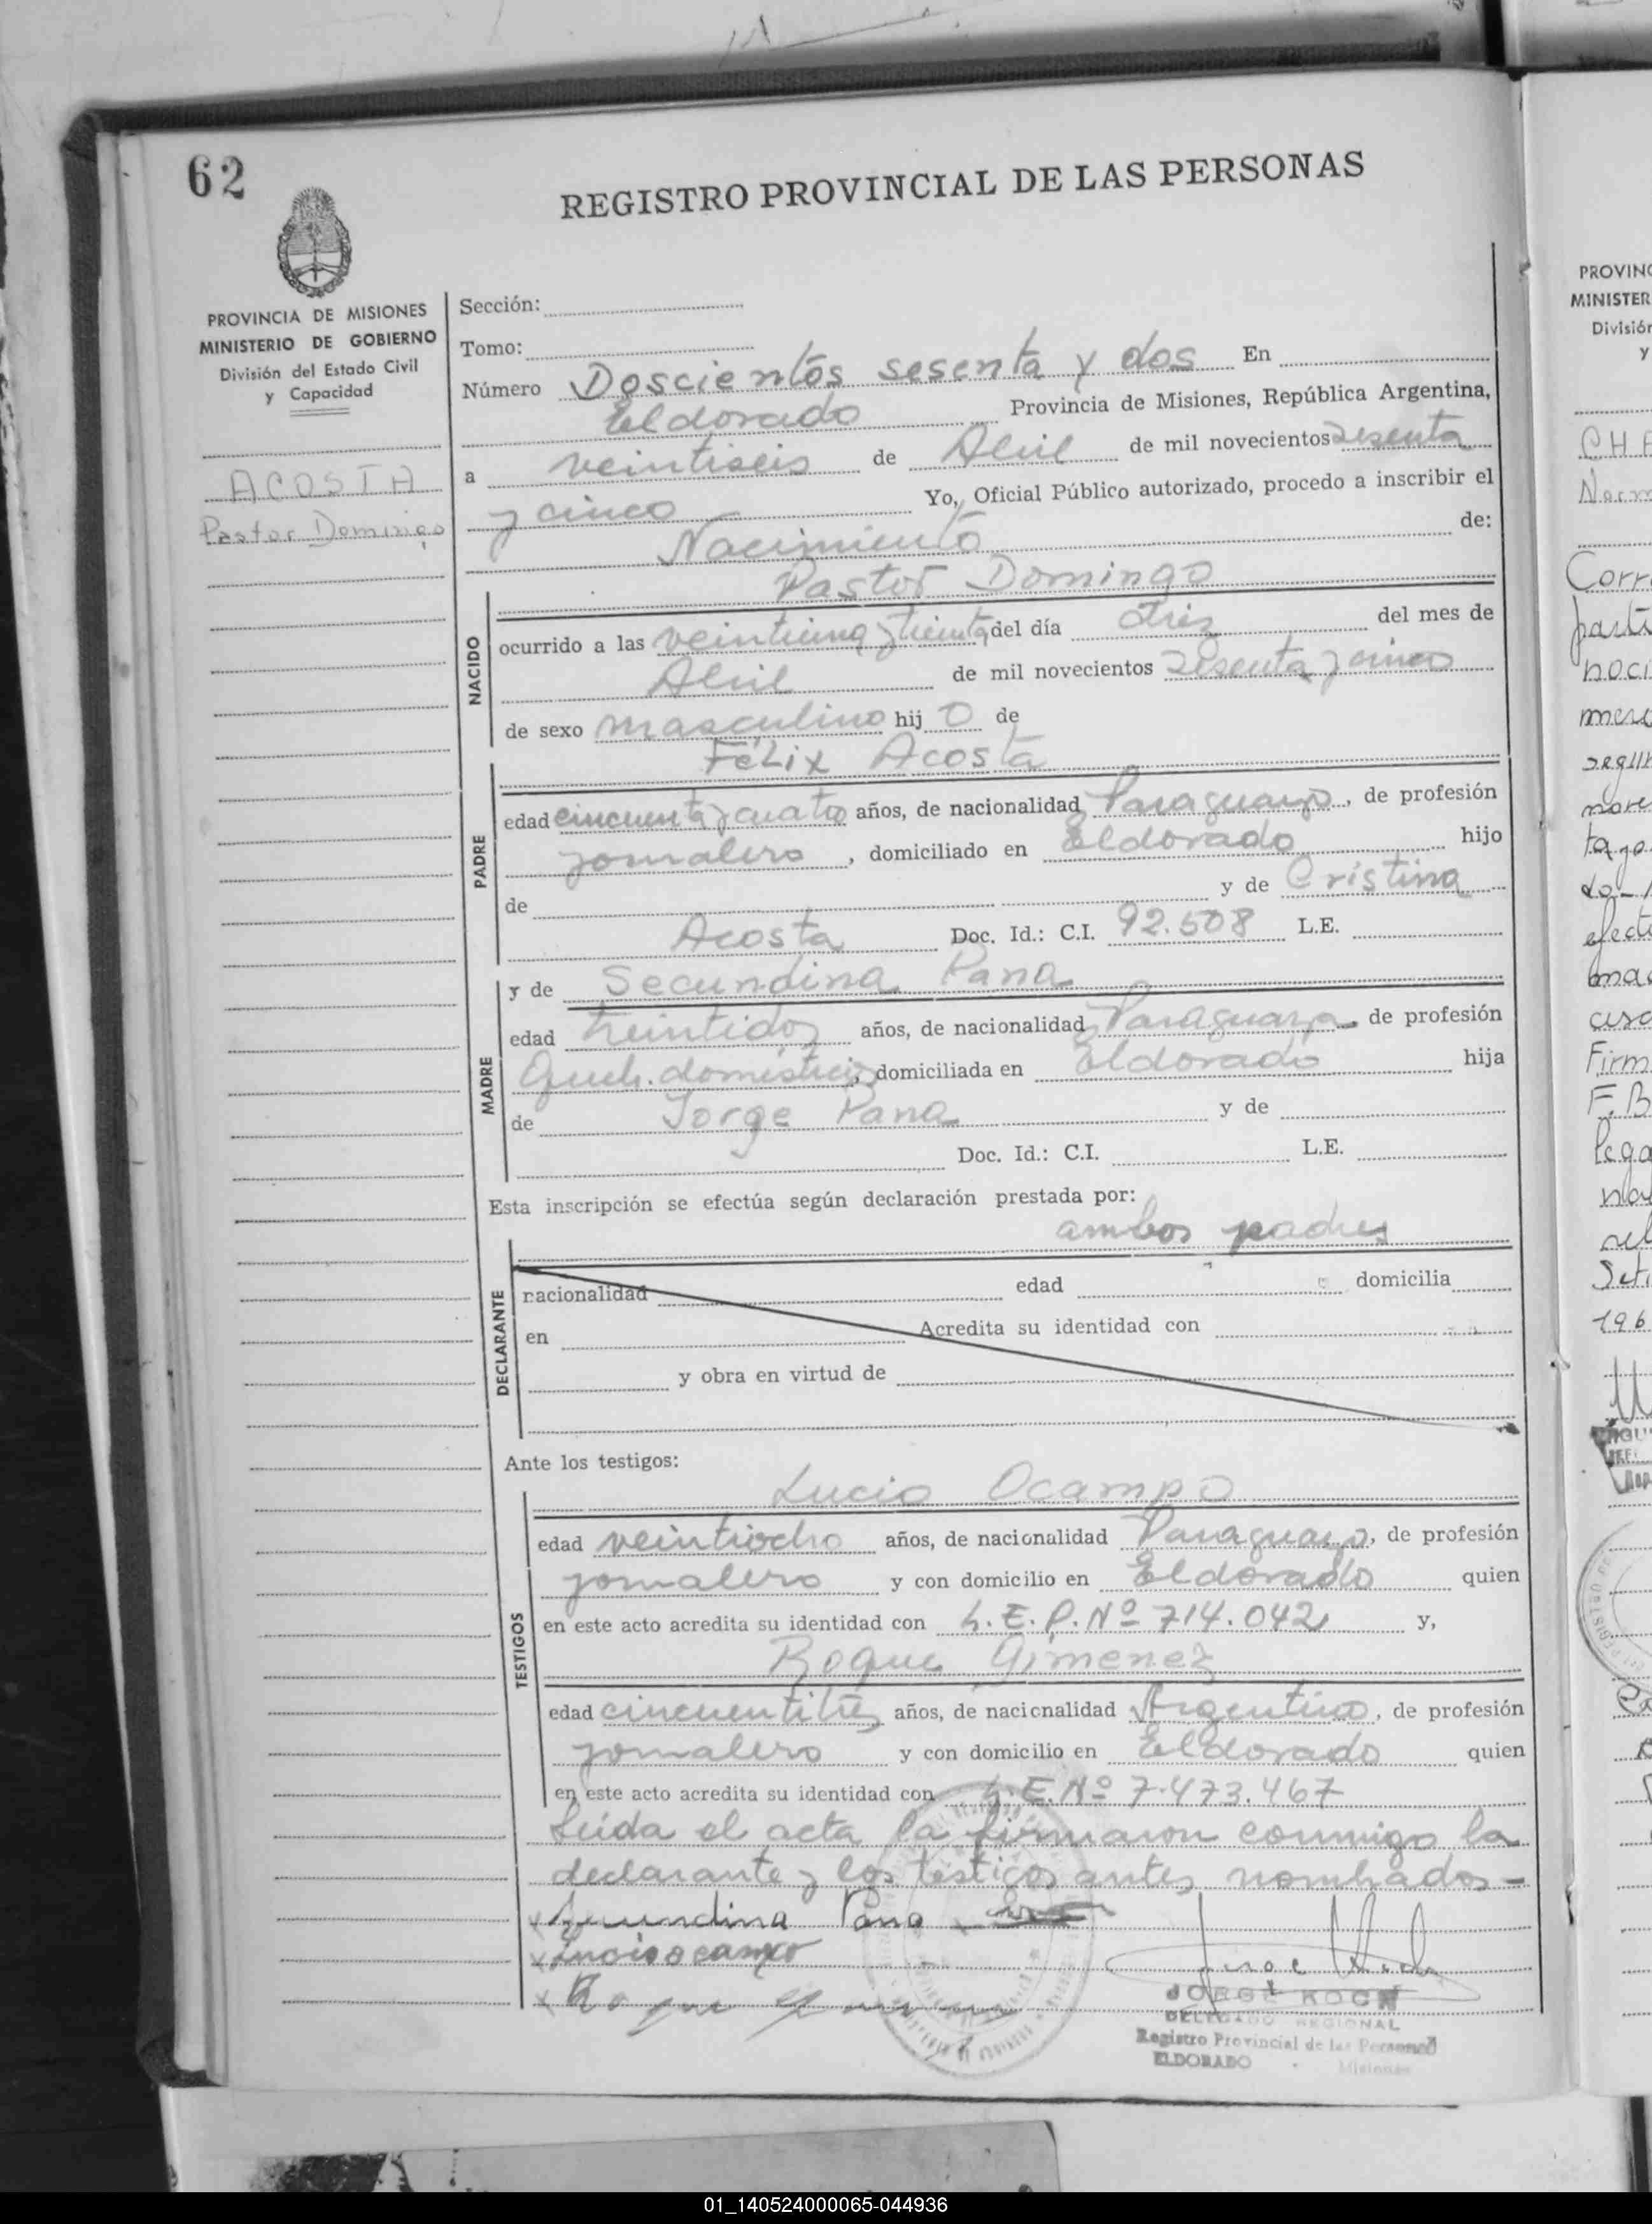 62
REGISTRO PROVINCIAL DE LAS PERSONAS
PROVINCIA DE MISIONES
MINISTERIO DE GOBIERNO
División del Estado Civil
y Capacidad
ACOSTA
Pastor Domingo
Sección:
Tomo:
Número Doscientos sesenta y dos En
Eldorado Provincia de Misiones, República Argentina,
a veintiseis de Abril de mil novecientos sesenta
y cinco Yo, Oficial Público autorizado, procedo a inscribir el
Nacimiento de:
Pastor Domingo
NACIDO
ocurrido a las veintiuna y treinta del día diez del mes de
Abril de mil novecientos sesenta y cinco
de sexo masculino hij o de
Félix Acosta
PADRE
edad cincuenta y cuatro años, de nacionalidad Paraguayo, de profesión
jornalero, domiciliado en Eldorado hijo
de y de Cristina
Acosta Doc. Id.: C.I. 92.508 L.E.
MADRE
y de Secundina Pana
edad treintidos años, de nacionalidad Paraguaya, de profesión
Queh. domésticos, domiciliada en Eldorado hija
de Jorge Pana y de
Doc. Id.: C.I. L.E.
Esta inscripción se efectúa según declaración prestada por:
ambos padres
DECLARANTE
nacionalidad edad domicilia
en Acredita su identidad con
y obra en virtud de
Ante los testigos:
Lucio Ocampo
TESTIGOS
edad veintiocho años, de nacionalidad Paraguayo, de profesión
jornalero y con domicilio en Eldorado quien
en este acto acredita su identidad con L.E.P. Nº 714.042 y,
Roque Gimenez
edad cincuentitrés años, de nacionalidad Argentino, de profesión
jornalero y con domicilio en Eldorado quien
en este acto acredita su identidad con L.E. Nº 7.473.467
Leida el acta la firmaron conmigo la
declarante y los testigos antes nombrados-
x Secundina Pana x
x Lucio ocampo
x Roque Gimenez
JORGE KOCH
DELEGADO REGIONAL
Registro Provincial de las Personas
ELDORADO Misiones
PROVINC
MINISTER
División
y
CHA
Norm
Corr
parti
noci
segun
tago
efect
Firm
F.B
Set.
196
01_140524000065-044936